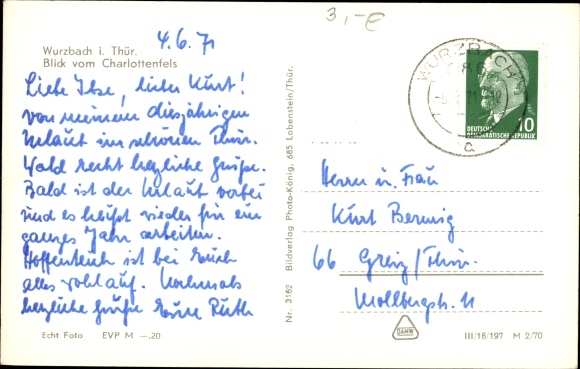 3,-€
4.6.71
Wurzbach i. Thür.
Blick vom Charlottenfels
Liebe Ilse, lieber Kurt!
von meinem diesjährigen
Urlaub im schönen Thür.
Wald recht herzliche Grüße.
Bald ist der Urlaub vorbei
und es heißt wieder für ein
ganzes Jahr arbeiten.
Hoffentlich ist bei Euch
alles wohlauf. Nochmals
herzliche Grüße Eure Ruth
Echt Foto EVP M —.20
Nr. 3162 Bildverlag Photo-König, 685 Lobenstein/Thür.
WURZBACH
a
10
DEUTSCHE
DEMOKRATISCHE REPUBLIK
Herrn u. Frau
Kurt
66 Greiz/Thür.
Mollbergstr. 11
DAMW
III/18/197 M 2/70